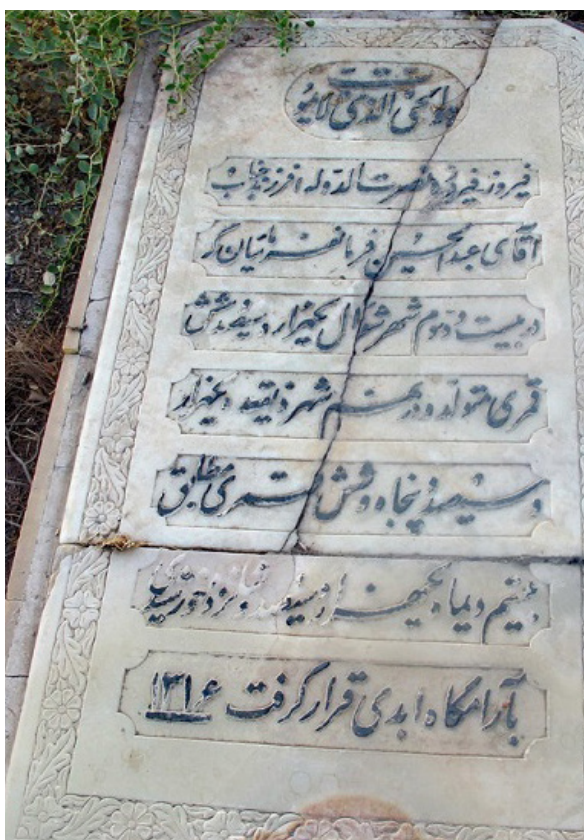 هو الحی الذی لایموت
فیروز فیروز نصرت الدوله فرزند جناب
آقای عبدالحسین فرمانفرمائیان که
در بیست و دوم شهر شوال یکهزار و سیصد و شش
قمری متولد و در هشتم شهر ذیقعده یکهزار
و سیصد و پنجاه و شش قمری مطابق
بیستم دیماه یکهزار و سیصد و خورشیدی
بآرامگاه ابدی قرار گرفت ۱۳۱۶